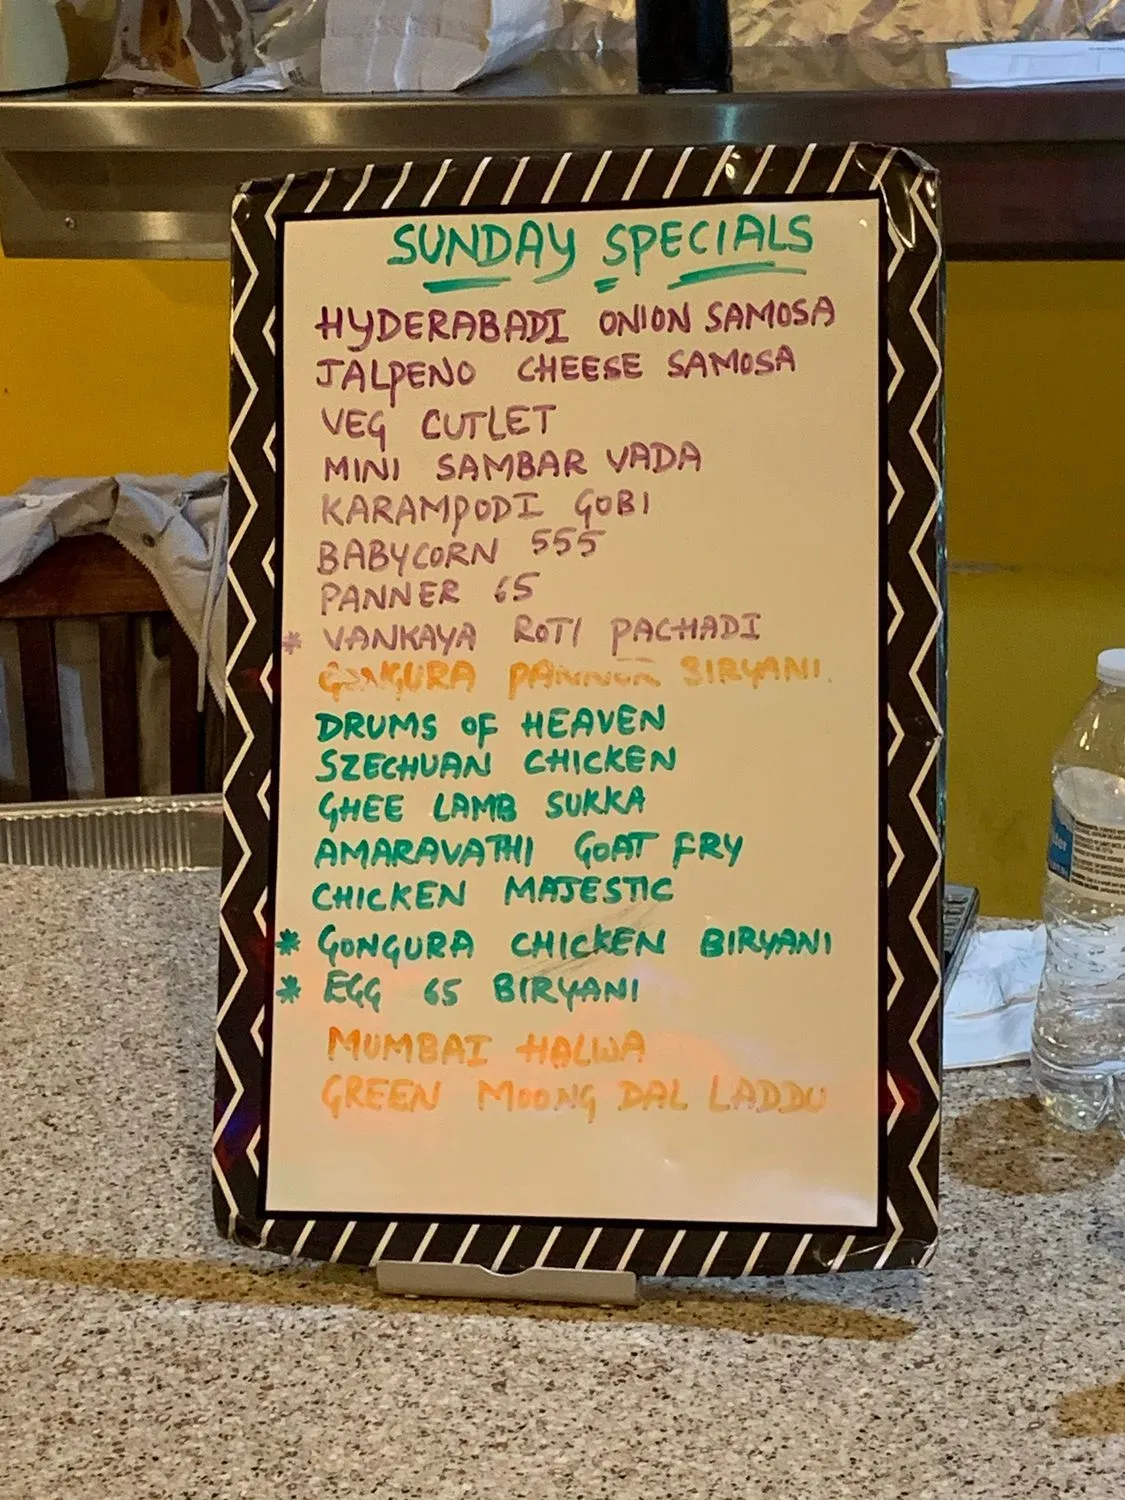 SUNDAY SPECIALS
HYDERABADI ONION SAMOSA
JALPENO CHEESE SAMOSA
VEG CUTLET
MINI SAMBAR VADA
KARAMPODI GOBI
BABYCORN 555
PANNER 65
* VANKAYA ROTI PACHADI
GONGURA PANNER BIRYANI.
DRUMS OF HEAVEN
SZECHUAN CHICKEN
GHEE LAMB SUKKA
AMARAVATHI GOAT FRY
CHICKEN MAJESTIC
* GONGURA CHICKEN BIRYANI
* EGG 65 BIRYANI
MUMBAI HALWA
GREEN MOONG DAL LADDU